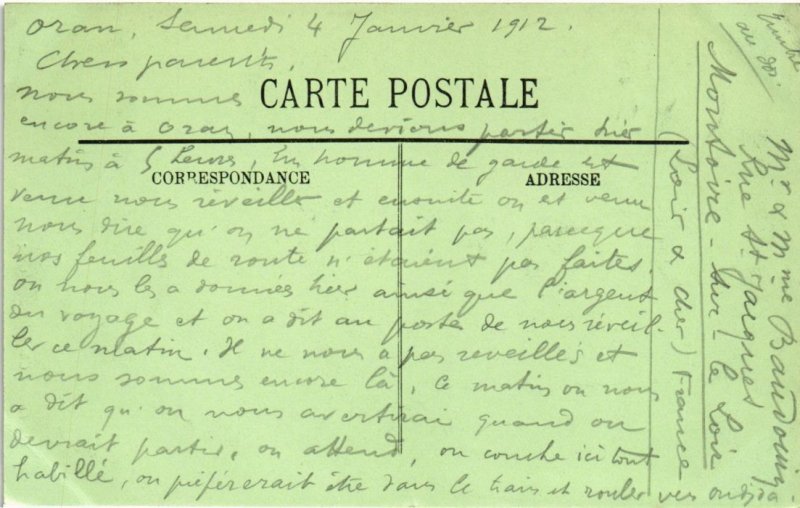 Oran, Samedi 4 Janvier 1912.
Chers parents,
nous sommes
CARTE POSTALE
encore à Oran, nous devions partir hier
matin à 5 heures, Un homme de garde est
CORRESPONDANCE
ADRESSE
venu nous réveiller et ensuite on est venu
nous dire qu'on ne partait pas, parceque
nos feuilles de route n'étaient pas faites.
on nous les a données hier ainsi que l'argent
du voyage et on a dit au poste de nous réveil-
ler ce matin. Il ne nous a pas réveillés et
nous sommes encore là. Ce matin on nous
a dit qu'on nous avertirai quand on
devrait partir, on attend, on couche ici tout
habillé, on préférerait être dans le train et rouler vers
Mr & Mme Baudouin
Rue St Jacques
Montoire-sur-le Loir
(Loir & cher) France
au dos.